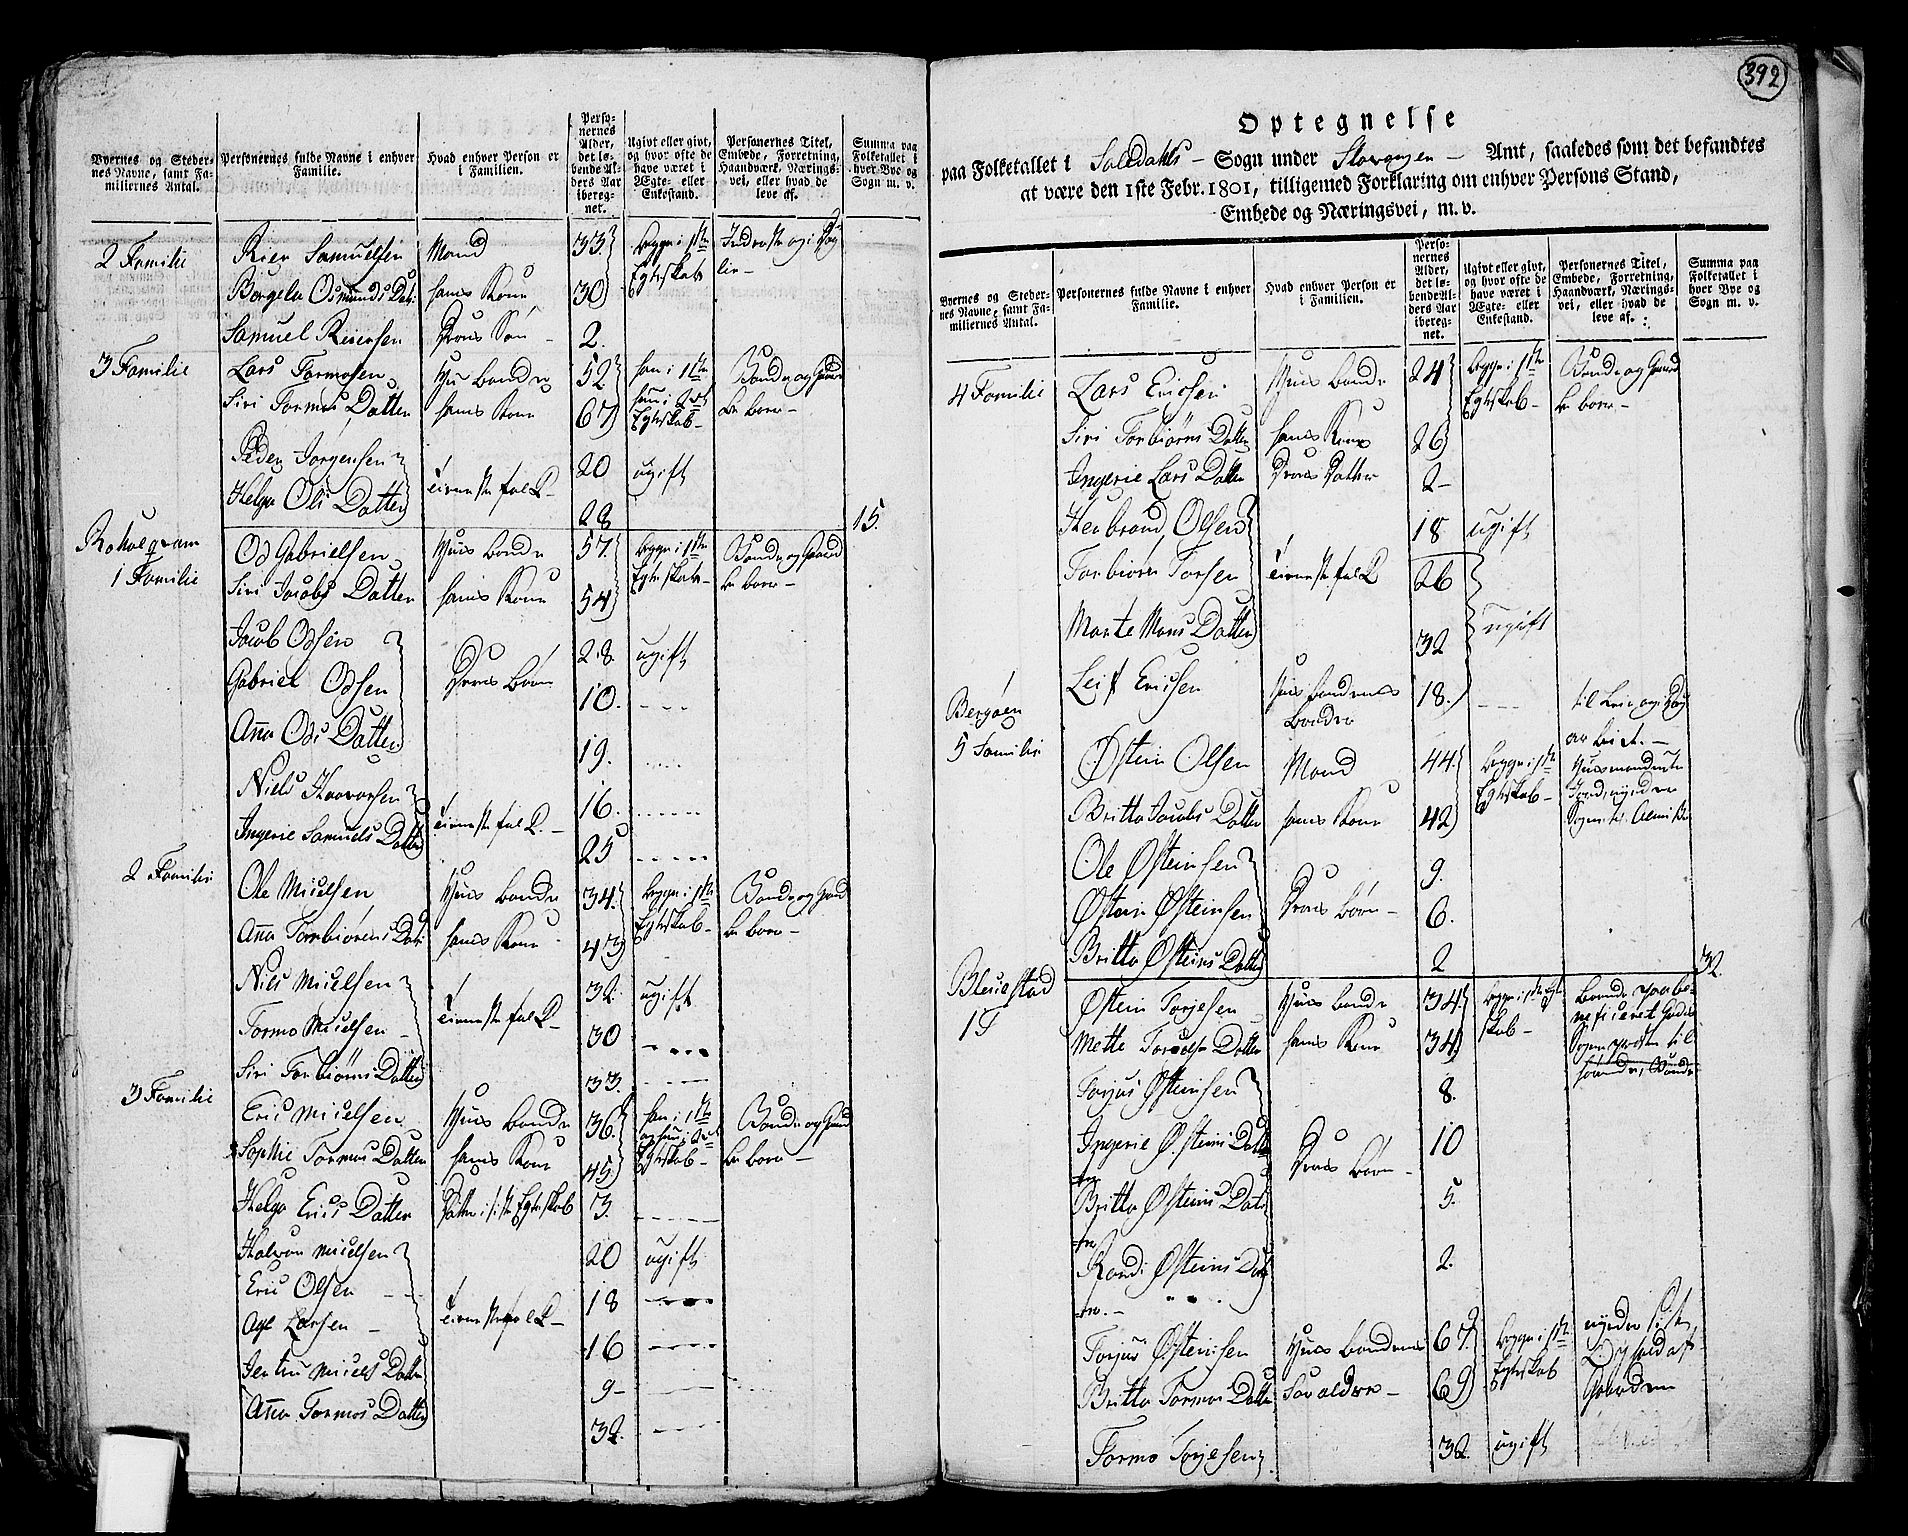 Byernes og Steder-
nes Navne, samt Fa-
miliernes Antal.
Personernes fulde Navne i enhver
Familie.
Hvad enhver Person er
i Familien.
Perso-
nernes
Alder,
det lø-
bende Al-
ders Aar
iberegnet.
Ugivt eller givt,
og hvor ofte de
have været i
Ægte- eller
Enkestand.
Personernes Titel,
Embede, Forretning,
Haandværk, Nærings-
vei, eller hvad de
leve af.
Summa paa
Folketallet i
hver Bye og
Sogn m. v.
2 Familie Rier Samuelsen Mand 33. begge i 1ste
Egteskab
Borgela Osmunds Dat. hans Kone 30
Samuel Reiersen Deres Søn 2.
3 Familie Lars Tormosen Huusbonde 52 han i 1ste Bonde og Gaard
Siri Tormos Datter hans Kone 67 Egteskab beboer
Peder Jørgensen 20 ugift
Helga Ols Datter tienestefolk 28
15.
1 Familie Od Gabrielsen Huusbonde 57. begge i 1ste Bonde og Gaard
Siri Jacobs Datter hans Kone 54 Egteskab beboer
Jacob Odsen 28. ugift
Gabriel Odsen Deres børn 10.
Anna Ods Datter 19.
Niels Haavorsen 16.
Ingerie Samuels Datter tienestefolk 25
2 Familie Ole Micelsen Huusbonde 34. begge i 1ste Bonde og Gaard
Anna Tornbiørens Dat. hans Kone 43 Egteskab beboer
Niels Micelsen 32. ugift
Tormo Micelsen tienestefolk 30
Siri Torbiørns Datter 33.
3 Familie Eric Micelsen Huusbonde 36. han i 1ste Bonde og Gaard
Sophie Tormos Datter hans Kone 45. Egteskab beboer
Helga Erics Datter Datter i 1ste Egteskab 3.
Halvor Micelsen 20 ugift
Eric Olsen 18
Age Larsen tienestefolk 16
Jertru Micels Datter 9
Anna Tormos Datter 32.
392
Optegnelse
paa Folketallet i Suledahls Sogn under Stavanger Amt, saaledes som det befandtes
at være den 1ste Febr. 1801, tilligemed Forklaring om enhver Persons Stand,
Embede og Næringsvei, m. v.
Byernes og Steder-
nes Navne, samt Fa-
miliernes Antal.
Personernes fulde Navne i enhver
Familie.
Hvad enhver Person er
i Familien.
Perso-
nernes
Alder,
det lø-
bende Al-
ders Aar
iberegnet.
Ugivt eller givt,
og hvor ofte de
have været i
Ægte- eller
Enkestand.
Personernes Titel,
Embede, Forretning,
Haandværk, Nærings-
vei, eller hvad de
leve af.
Summa paa
Folketallet i
hver Bye og
Sogn m. v.
4 Familie Lars Ericsen Huusbonde 24 begge i 1ste Bonde og Gaard
Egteskab beboer
Siri Torbiørns Datter hans Kone 26
Ingerie Lars Datter Deres Datter 2
Herbrand Olsen 18 ugift
Torbiørn Torsen tienestefolk 26
Marte Mons Datter 32 ugift
Leif Ericsen Huusbondens 18.
broder
5 Familie Østein Olsen Mand 44. begge i 1ste
Britta Jacobs Datter hans Kone 42 Egteskab
Ole Østeinsen 9.
Østein Østeinsen Deres børn 6.
Britta Østeins Datter 2
32
1 F Østein Torjesen Huusbonde 34 begge i 1ste Egte
skab
Mette Datter hans Kone 34
Torjus Østeinsen 8.
Ingerie Østeins Dat 10
ter
Britta Østeins Dat Deres børn 5.
ter
Randi Østeins Dat 2.
ter.
Torjus Østeinsen Huusbondens 67. begge i 1ste
Britta Tormos Datter Foraldre 69 Egteskab
Gaarden
Tormo Torjesen 32 ugift